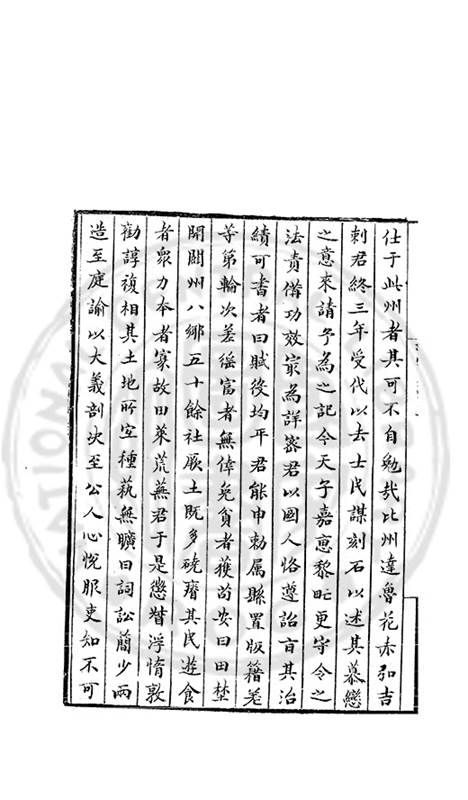 仕于此州者其可不自勉哉比州達魯花赤弘吉
刺君終三年受代以去士民謀刻石以述其慕戀
之意來請予為之記今天子嘉惠黎甿更守令之
法責備功效寂為詳密君以國人恪遵詔旨其治
績可書者曰賦役均平君能申勑属縣置版籍差
等第輪次差徭富者無倖免貧者獲茍安曰田埜
開闢州八鄉五十餘社厥土既多磽瘠其民遊食
者衆力本者寡故田萊荒蕪君于是懲瞀浮惰敦
勸諄複相其土地所宜種蓺無曠曰詞訟簡少兩
造至庭諭以大義剖决至公人心悅服吏知不可